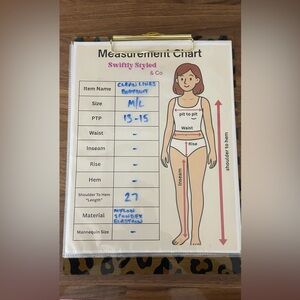 Measurement Chart
Swiftly Styled
& Co
Item Name CLEAN LINES BODYSUIT
Size M/L
PTP 13-15
Waist -
Inseam -
Rise -
Hem -
Shoulder To Hem "Length" 27
Material NYLON SPANDEX ELASTANE
Mannequin Size -
pit to pit
Waist
Rise
Inseam
shoulder to hem